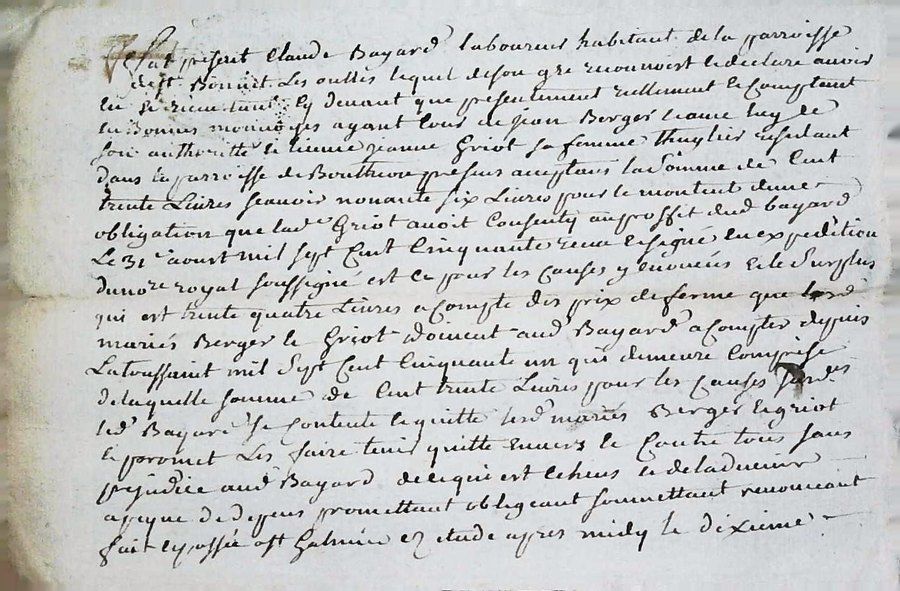 fut présent Claude Bayard laboureur habitant de la parroisse
de st Bonnet Les oulles lequel de son gré reconnoist et declare avoir
eu et reçeu tant cy devant que présentement réellement et comptant
en bonnes monnoyes ayant cour de Jean Berger et avec luy de
son authorité et licence Jeanne Griot sa femme Thuylier résidant
dans la parroisse de Bouthéon présens acceptans la somme de Cent
trente Livres scavoir nonante six Livres pour le montent d'une
obligation que lade Griot avoit Consenty au proffit dud bayard
Le 31e aoust mil sept Cent Cinquante receu et signé en expédition
du nore royal soussigné est ce pour les Causes y énoncées et le Surplus
qui est trente quatre Livres a Compte des prix de ferme que lesd
mariés Berger et Griot doivent aud Bayard a Compter depuis
La toussaint mil Sept Cent Cinquante un qui demeure Comprise
de laquelle somme de Cent trente Livres pour les Causes surdes
led Bayard se contente et quitte lesd mariés Berger et griot
et promet Les faire tenir quitte envers et Contre tous sans
préjudice aud Bayard de ce qui est Echeus et de ladvenir
a peyne de depens promettant obligeant soumettant renonceant
fait et passé a st Galmier ez étude apres midy le dixieme